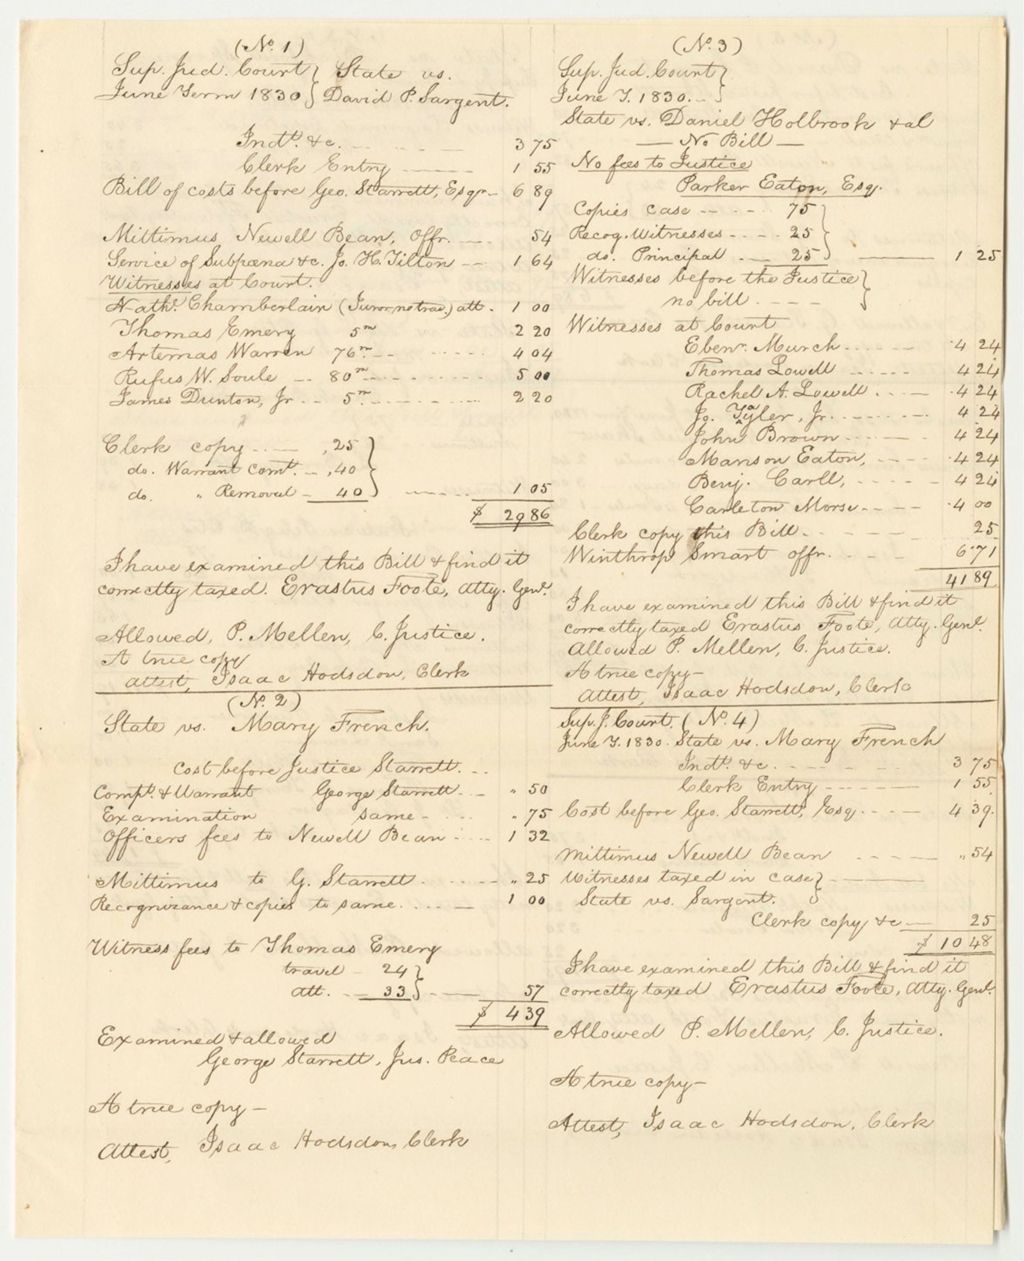 (No. 1)
Sup. Jud. Court } State vs.
June Term 1830 } David P. Sargent.
Indt. &c. 3 75
Clerk Entry 1 55
Bill of costs before Geo. Starrett, Esqr 6 89
Mittimus, Newell Bean, Offr. 54
Service of Subpœna &c. Jo. H. Tilton 1 64
Witnesses at Court.
Nathl. Chamberlain (Juror no trav.) att. 1 00
Thomas Emery 5m 2 20
Artemas Warren 76m 4 04
Rufus W. Soule 80m 5 00
James Dunton, Jr 5m 2 20
Clerk copy ,25 }
do. Warrant Comt. ,40 }
do. " Removal 40 } 1 05
$ 29 86
I have examined this Bill & find it
correctly taxed. Erastus Foote, Atty. Genl.
Allowed, P. Mellen, C. Justice.
A true copy
Attest, Isaac Hodsdon, Clerk
(No. 2)
State vs. Mary French.
Cost before Justice Starrett.
Compt. & Warrant George Starrett " 50
Examination same " 75
Officers fees to Newell Bean 1 32
Mittimus to G. Starrett " 25
Recognizance & copies to same 1 00
Witness fees to Thomas Emery
travel 24 }
att. 33 } 57
$ 4 39
Examined & allowed
George Starrett, Jus. Peace
A true copy—
Attest, Isaac Hodsdon, Clerk
(No. 3)
Sup. Jud. Court }
June T. 1830. }
State vs. Daniel Holbrook & al
— No Bill —
No fees to Justice
Parker Eaton, Esq.
Copies case 75 }
Recog. Witnesses 25 }
do. Principal 25 } 1 25
Witnesses before the Justice }
no bill. }
Witnesses at Court
Ebenr. Murch 4 24
Thomas Lowell 4 24
Rachel A. Lowell 4 24
Jo. Tayler, Jr. 4 24
John Brown 4 24
Manson Eaton, 4 24
Benj. Carll, 4 24
Carleton Morse 4 00
Clerk copy this Bill 25
Winthrop Smart offr. 6 71
41 89
I have examined this Bill & find it
correctly taxed Erastus Foote, Atty. Genl.
Allowed P. Mellen, C. Justice.
A true copy—
Attest, Isaac Hodsdon, Clerk
Sup. J. Court, (No. 4)
June T. 1830. State vs. Mary French
Indt. &c. 3 75
Clerk Entry 1 55
Cost before Geo. Starrett, Esq 4 39.
Mittimus Newell Bean " 54
Witnesses taxed in case }
State vs. Sargent. }
Clerk copy &c 25
$ 10 48
I have examined this Bill & find it
correctly taxed Erastus Foote, Atty. Genl.
Allowed P. Mellen, C. Justice.
A true copy—
Attest, Isaac Hodsdon, Clerk